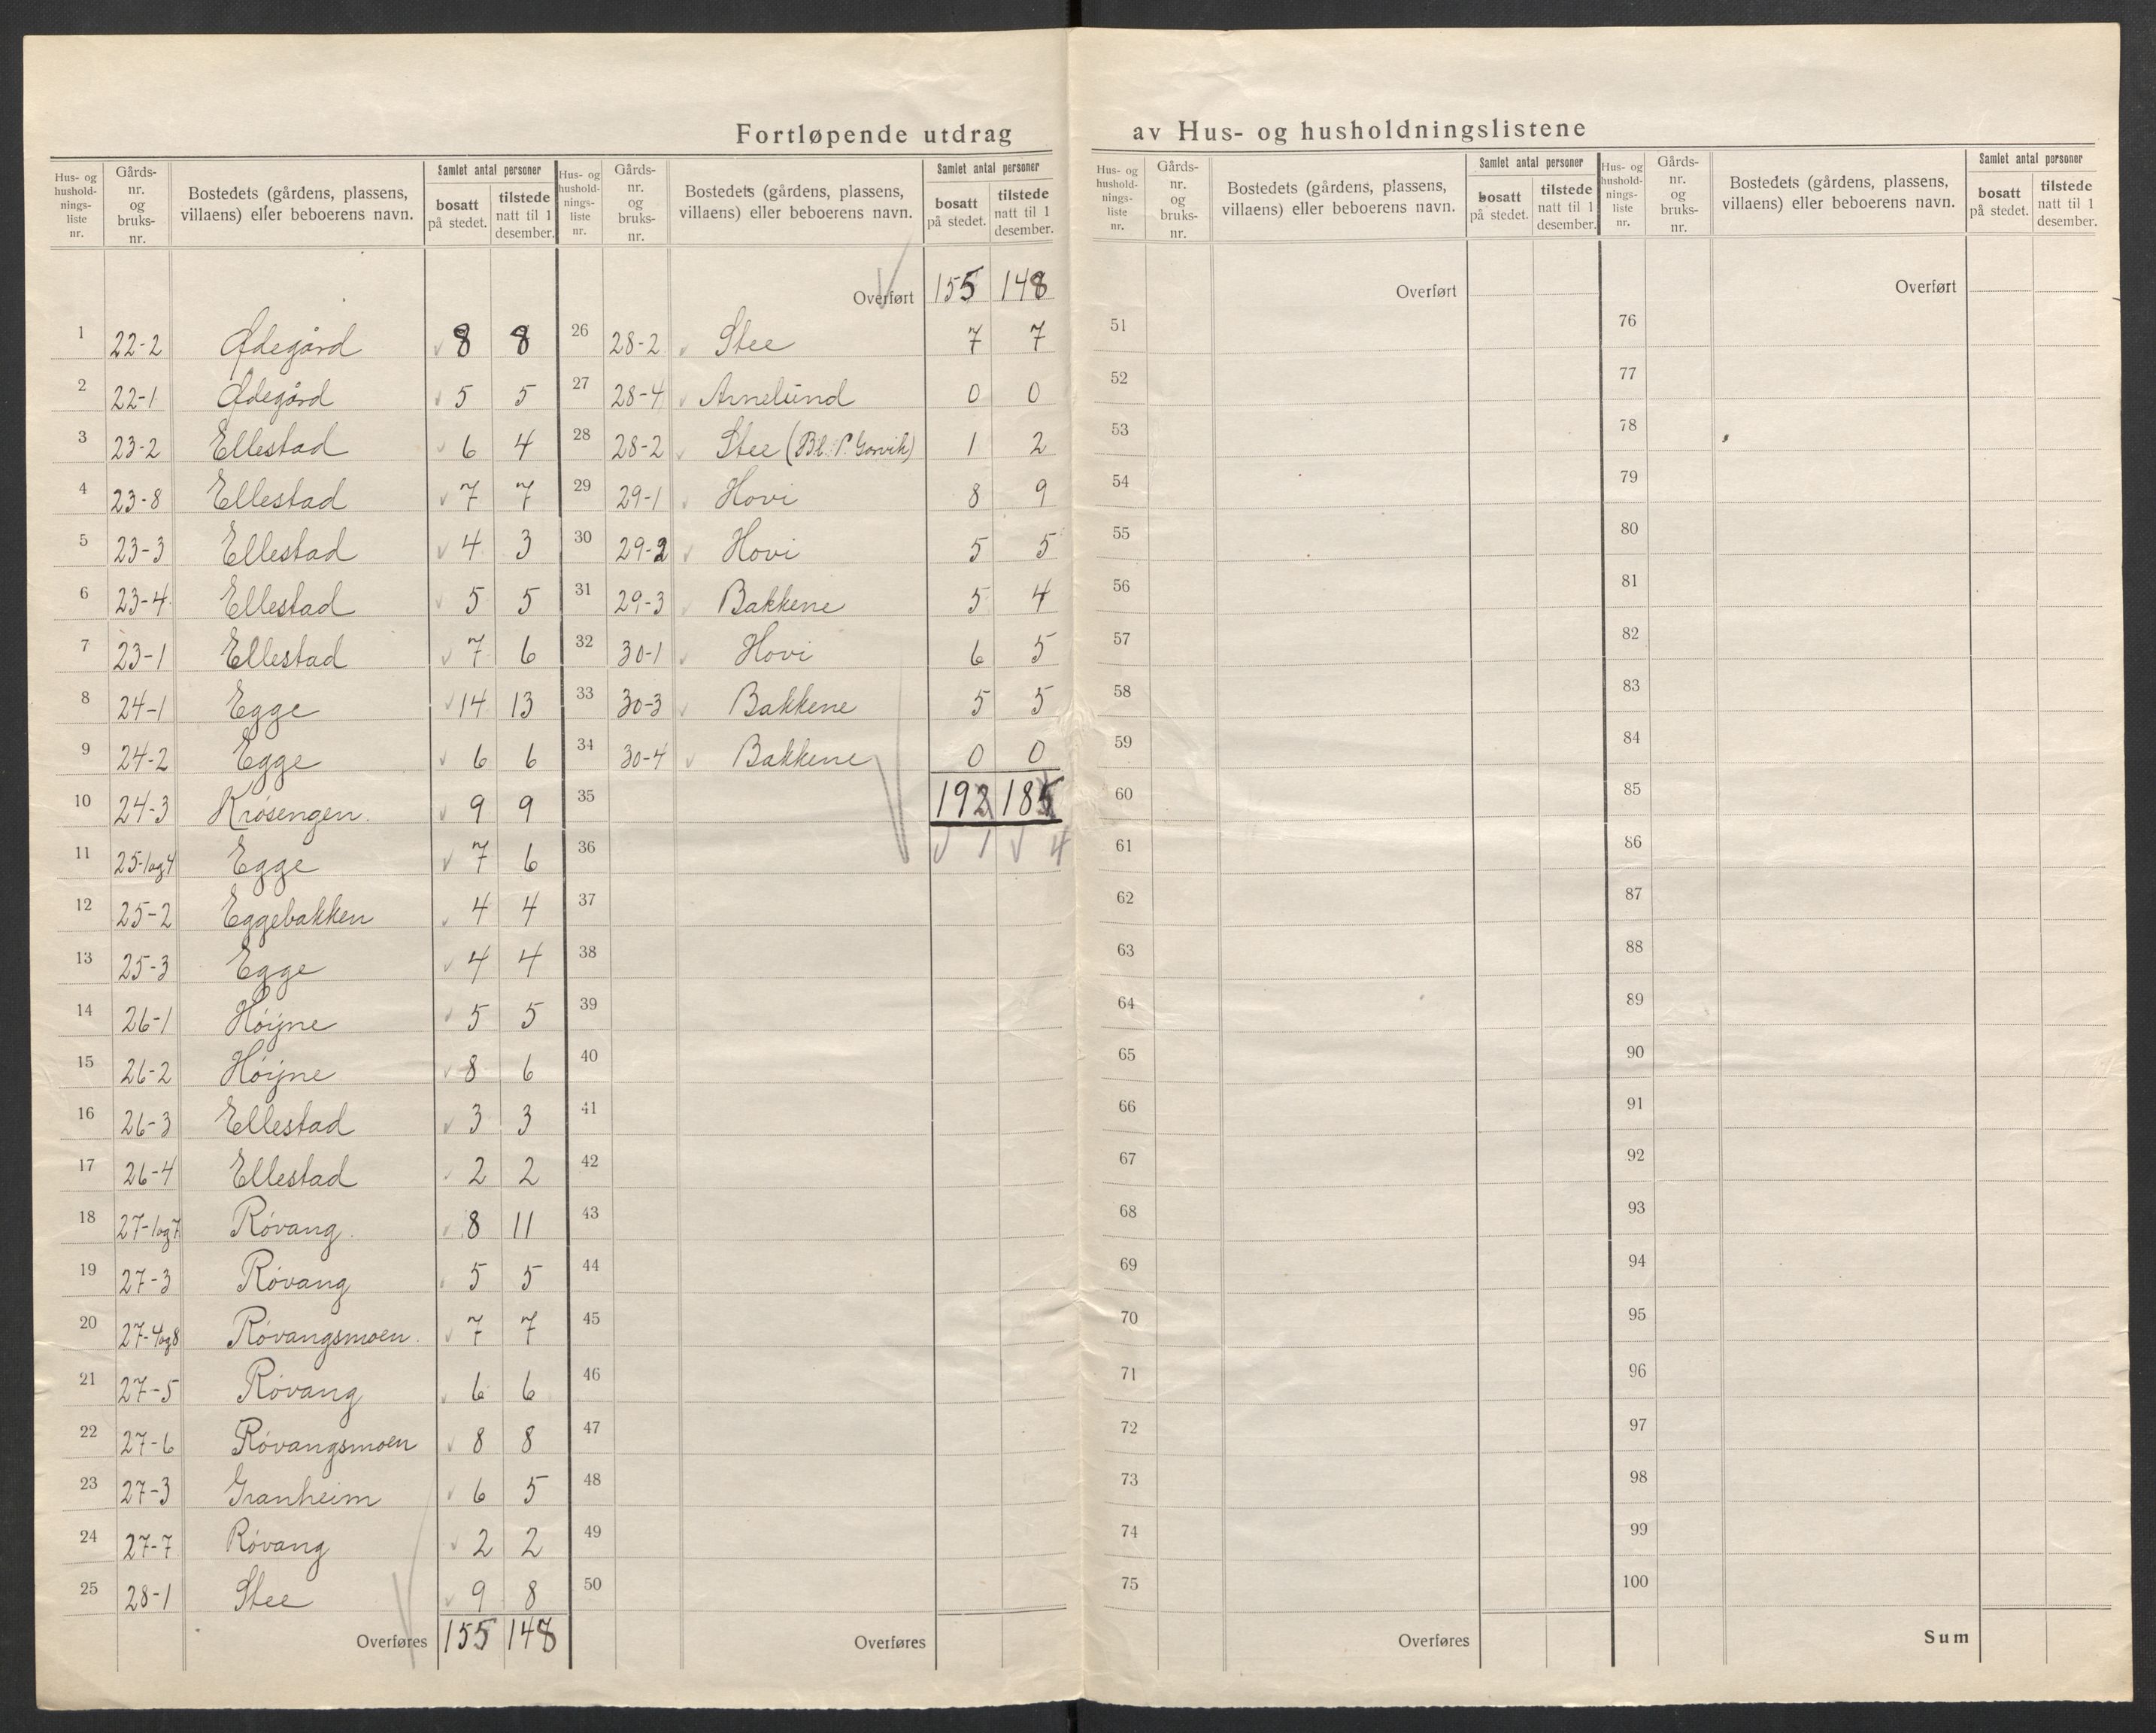 Fortløpende utdrag av Hus- og husholdningslistene
Hus- og husholdnings-liste nr. Gårds-nr. og bruks-nr. Bostedets (gårdens, plassens, villaens) eller beboerens navn. Samlet antal personer bosatt på stedet. tilstede natt til 1 desember.
1 22-2 Ødegård 8 8
2 22-1 Ødegård 5 5
3 23-2 Ellestad 6 4
4 23-8 Ellestad 7 7
5 23-3 Ellestad 4 3
6 23-4 Ellestad 5 5
7 23-1 Ellestad 7 6
8 24-1 Egge 14 13
9 24-2 Egge 6 6
10 24-3 Krøsengen. 9 9
11 25-1og4 Egge 7 6
12 25-2 Eggebakken 4 4
13 25-3 Egge 4 4
14 26-1 Høijne 5 5
15 26-2 Høijne 8 6
16 26-3 Ellestad 3 3
17 26-4 Ellestad 2 2
18 27-1og7 Røvang. 8 11
19 27-3 Røvang 5 5
20 27-4og8 Røvangsmoen. 7 7
21 27-5 Røvang 6 6
22 27-6 Røvangsmoen 8 8
23 27-3 Granheim 6 5
24 27-7 Røvang 2 2
25 28-1 Stee 9 8
Overføres 155 148
Hus- og husholdnings-liste nr. Gårds-nr. og bruks-nr. Bostedets (gårdens, plassens, villaens) eller beboerens navn. Samlet antal personer bosatt på stedet. tilstede natt til 1 desember.
Overført 155 148
26 28-2 Stee 7 7
27 28-4 Arnelund 0 0
28 28-2 Stee (Bl. P. Garvik) 1 2
29 29-1 Hovi 8 9
30 29-2 Hovi 5 5
31 29-3 Bakkene 5 4
32 30-1 Hovi 6 5
33 30-3 Bakkene 5 5
34 30-4 Bakkene 0 0
35 192 185
36 1 4
37
38
39
40
41
42
43
44
45
46
47
48
49
50
Overføres
Hus- og husholdnings-liste nr. Gårds-nr. og bruks-nr. Bostedets (gårdens, plassens, villaens) eller beboerens navn. Samlet antal personer bosatt på stedet. tilstede natt til 1 desember.
Overført
51
52
53
54
55
56
57
58
59
60
61
62
63
64
65
66
67
68
69
70
71
72
73
74
75
Overføres
Hus- og husholdnings-liste nr. Gårds-nr. og bruks-nr. Bostedets (gårdens, plassens, villaens) eller beboerens navn. Samlet antal personer bosatt på stedet. tilstede natt til 1 desember.
Overført
76
77
78
79
80
81
82
83
84
85
86
87
88
89
90
91
92
93
94
95
96
97
98
99
100
Sum